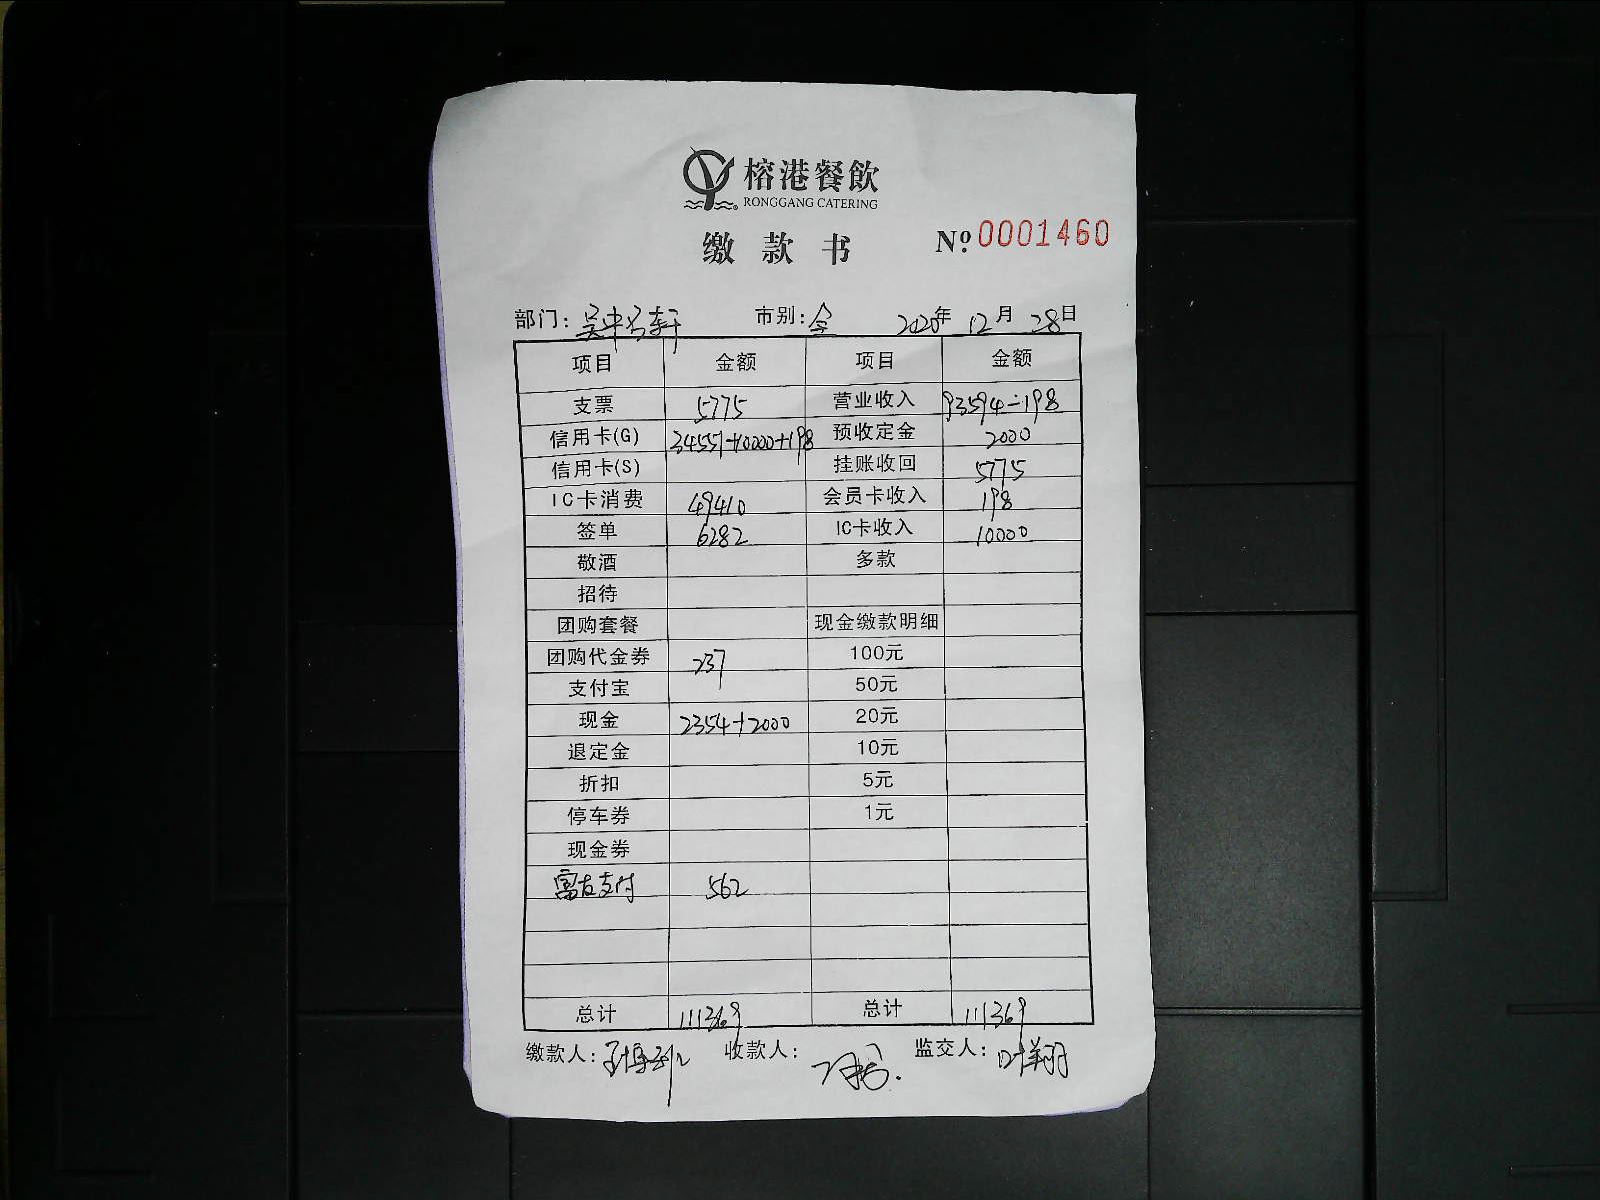 榕港餐飲
RONGGANG CATERING
缴款书 № 0001460
部门: 吴中名轩 市别: 全 2020年 12月 28日
项目 金额 项目 金额
支票 5775 营业收入 93594-198
信用卡(G) 34551+10000+198 预收定金 2000
信用卡(S) 挂账收回 5775
IC卡消费 49410 会员卡收入 198
签单 6282 IC卡收入 10000
敬酒 多款
招待
团购套餐 现金缴款明细
团购代金券 237 100元
支付宝 50元
现金 2354+2000 20元
退定金 10元
折扣 5元
停车券 1元
现金券
富友支付 562
总计 111369 总计 111369
缴款人: 收款人: 监交人: 叶翔